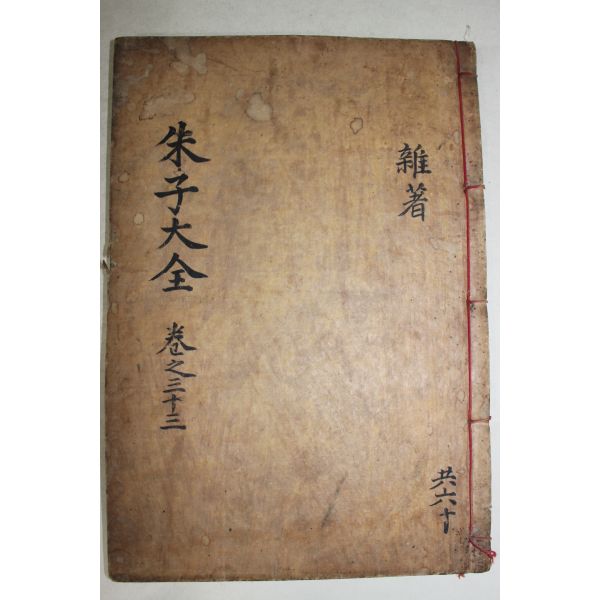 雜著
共六十
朱子大全
卷之三十三